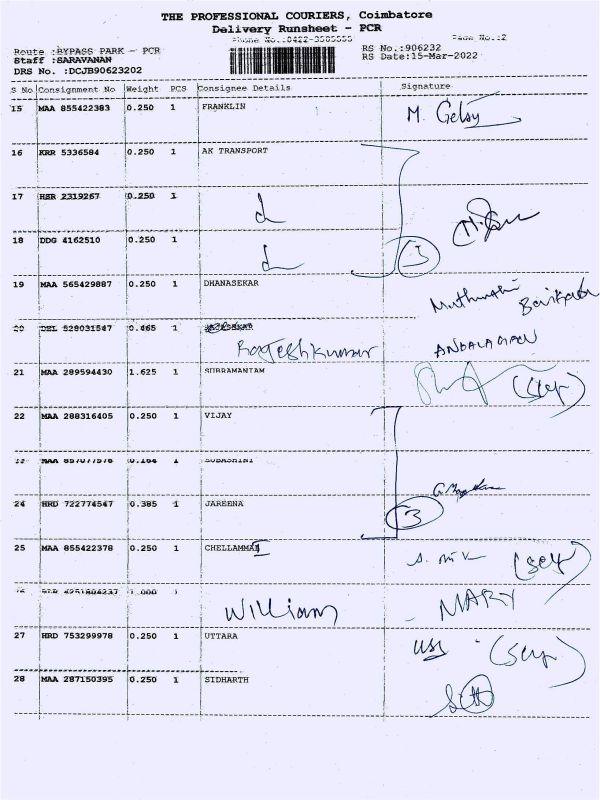 THE PROFESSIONAL COURIERS, Coimbatore
Delivery Runsheet - PCR
Page No.:2
Route :BYPASS PARK - PCR
RS No.:906232
Staff :SARAVANAN
RS Date:15-Mar-2022
DRS No. :DCJB90623202
S No Consignment No Weight PCS Consignee Details Signature
15 MAA 855422383 0.250 1 FRANKLIN M. Gelsy
16 KRR 5336584 0.250 1 AK TRANSPORT
17 HSR 2319267 0.250 1
18 DDG 4162510 0.250 1 3
19 MAA 565429887 0.250 1 DHANASEKAR
20 DEL 528031547 0.465 1
Rageshkumar
21 MAA 289594430 1.625 1 SUBRAMANIAM (self)
22 MAA 288316405 0.250 1 VIJAY
SUBASHINI
24 HRD 722774547 0.385 1 JAREENA 3
25 MAA 855422378 0.250 1 CHELLAMMAI (self)
William MARY
27 HRD 753299978 0.250 1 UTTARA (self)
28 MAA 287150395 0.250 1 SIDHARTH